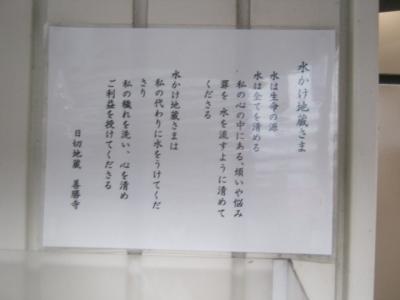 水かけ地蔵さま
水は生命の源
水は全てを清める
私の心の中にある、煩いや悩み
罪を水を流すように清めて
くださる
水かけ地蔵さまは
私の代わりに水をうけてくだ
さり
私の穢れを洗い、心を清め
ご利益を授けてくださる
日切地蔵 善勝寺